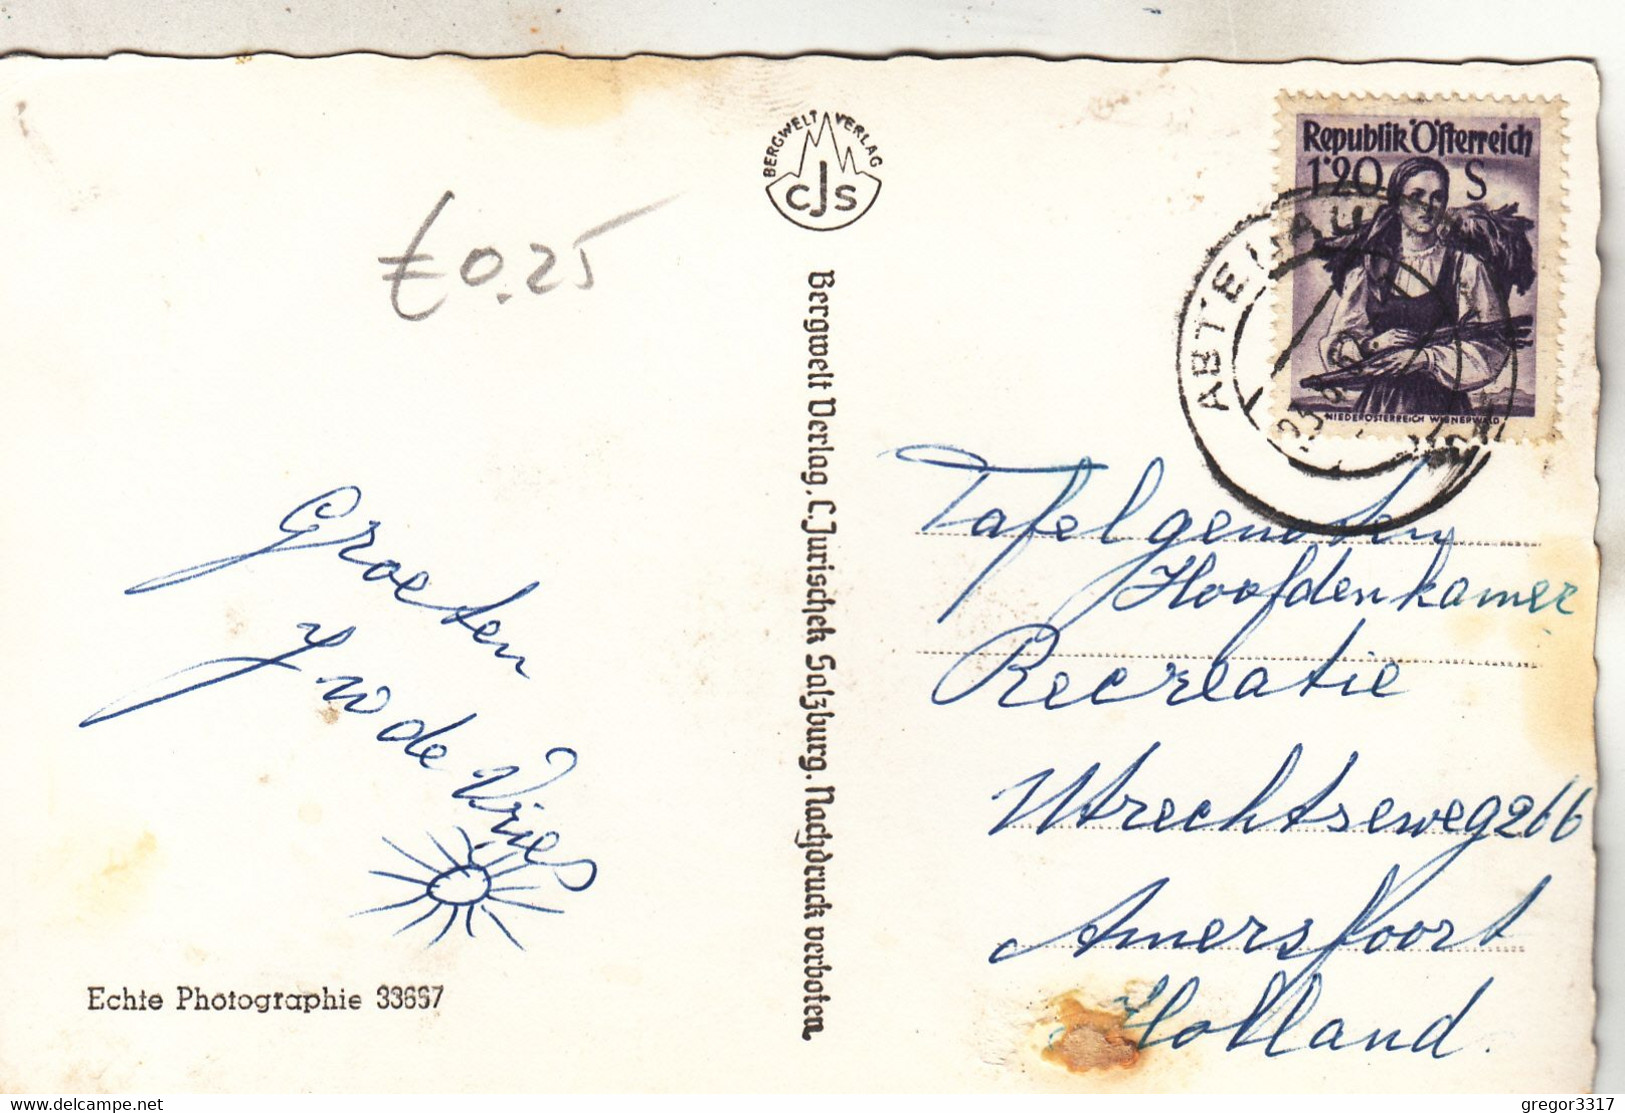 €0.25
Groeten
J W de Vries
Echte Photographie 33667
BERGWELT VERLAG
CJS
Bergwelt Verlag, C. Jurischek Salzburg. Nachdruck verboten
Republik Österreich
1·20 S
NIEDERÖSTERREICH WIENERWALD
ABTENAU
Tafelgenoten
Hoofdenkamer
Recreatie
Utrechtseweg 266
Amersfoort
Holland.
gregor3317